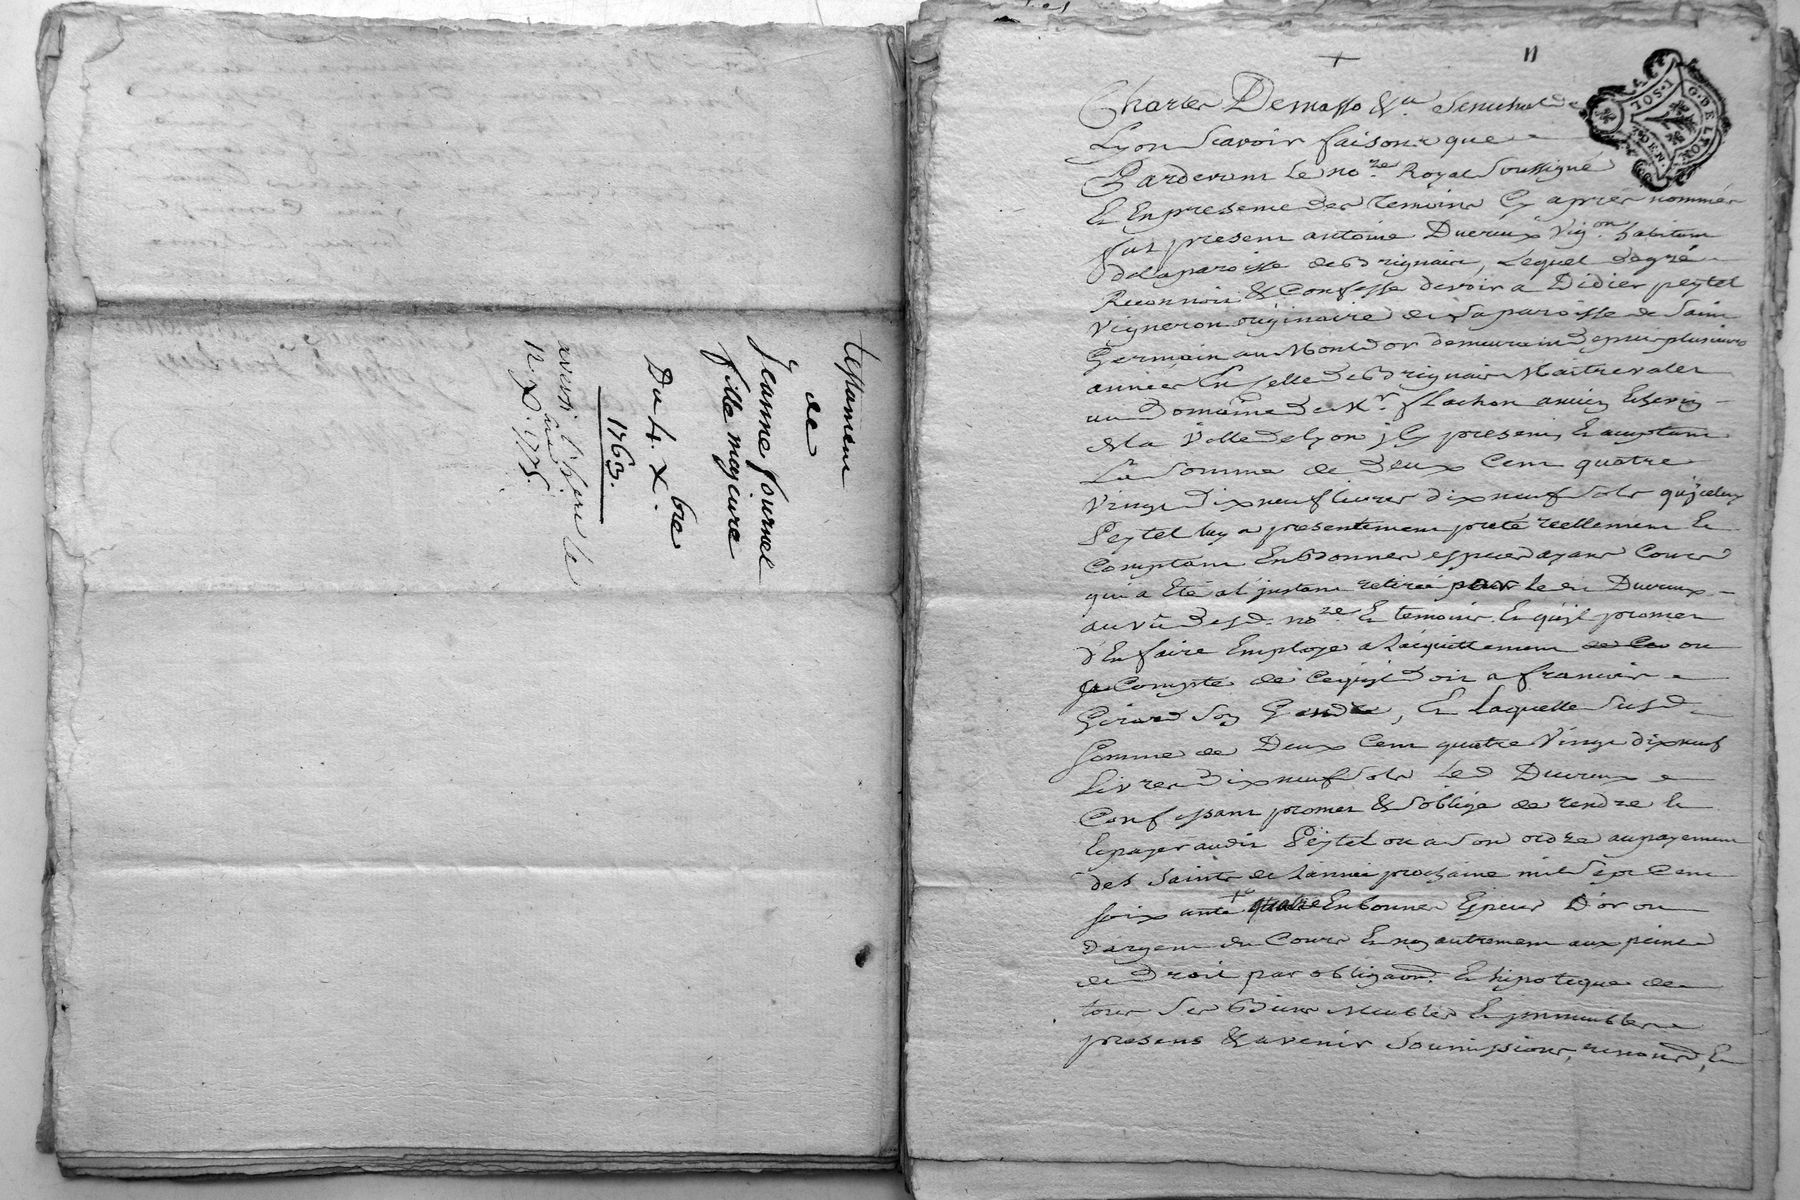 testament
de
Jeanne fournel
fille majeure
Du 4. Xbre
1763.
averti l'here le
12. X. 1775.
+
11
G. DE LYON.
1. SOL
DEN.
Charles Demasso &a Senechal de
Lyon Scavoir faisons que
Pardevant le nore Royal Soussigné
Et En presence des temoins Cy apres nommés
fut present antoine Ducreux Vigon habitant
de la paroisse de Brignais, Lequel de gré
Reconnoit & Confesse devoir a Didier peytel
Vigneron originaire de la paroisse de Saint
Germain au Montdor demeurant depuis plusieurs
années En Celle de Brignais Maitre valet
au Domaine de Mr flachon ancien Echevin
de la Ville de Lyon jcy present, Et acceptant
La Somme de deux Cent quatre
Vingt dix neuf livres dix neuf sols qu'jceluy
Peytel luy a presentement preté reellement Et
Comptant En Bonnes especes ayant Cours
qui a Eté a l'jnstant retirée par led Ducreux
au vû desd. nore Et temoins. Et qu'jl promet
d'En faire Employ a L'acquittement ou
a Compte de Ce qu'jl doit a francois
Girard Son Gendre, Et Laquelle Susd
Somme de Deux Cent quatre Vingt dix neuf
Livres dix neuf Sols Led Ducreux
Confessant promet & S'oblige de rendre Et
Et payer audit Peytel ou a Son ordre au payement
des Saints de L'année prochaine mil Sept Cent
soixante quatre En bonnes Especes D'or ou
d'argent du Cours Et non autrement aux peines
de Droit par obligaon. Et hipoteque de
tous Ses Biens Meubles Et jmmeubles
presens & avenir Soumissions, renond, Et